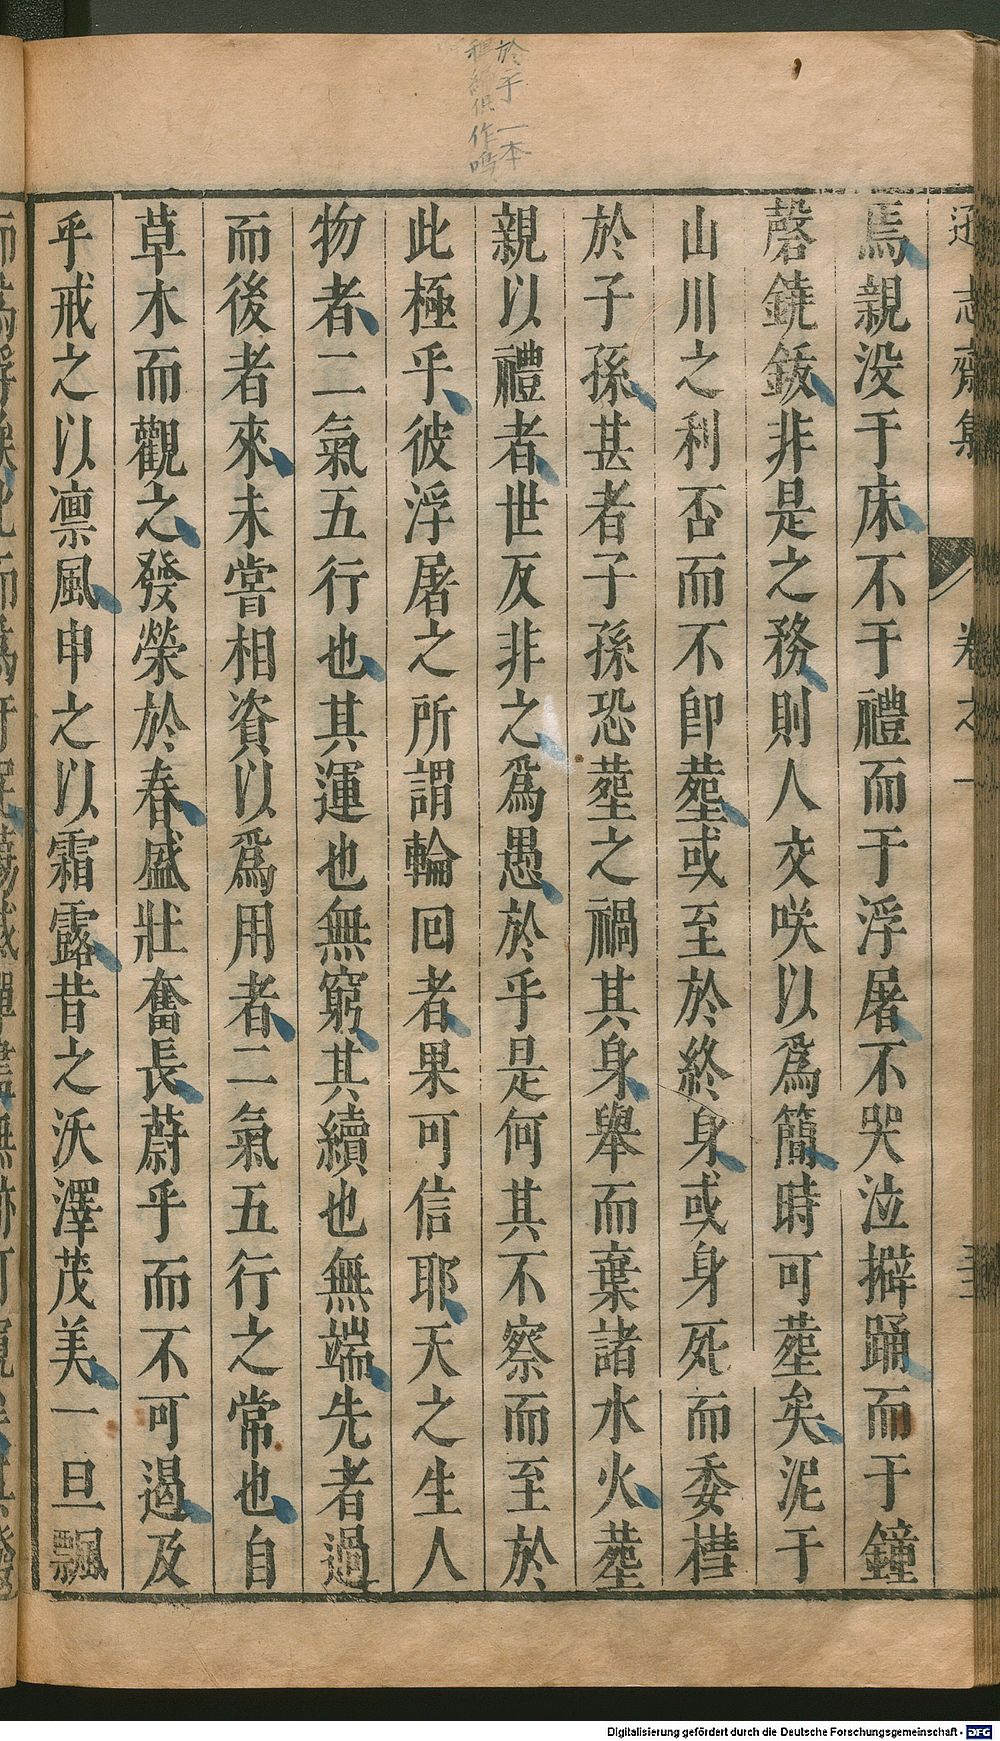 於乎一本
作嗚
遜志齋集 卷之一
焉親没于床不于禮而于浮屠不哭泣擗踊而于鐘
磬鐃鈸非是之務則人交咲以爲簡時可塟矣泥于
山川之利否而不卽塟或至於終身或身死而委櫘
於子孫甚者子孫恐塟之禍其身舉而棄諸水火塟
親以禮者世反非之爲愚於乎是何其不察而至於
此極乎彼浮屠之所謂輪回者果可信耶天之生人
物者二氣五行也其運也無窮其續也無端先者過
而後者來未嘗相資以爲用者二氣五行之常也自
草木而觀之發榮於春盛壯奮長蔚乎而不可遏及
乎戒之以凛風申之以霜露昔之沃澤茂美一旦飄
Digitalisierung gefördert durch die Deutsche Forschungsgemeinschaft - DFG